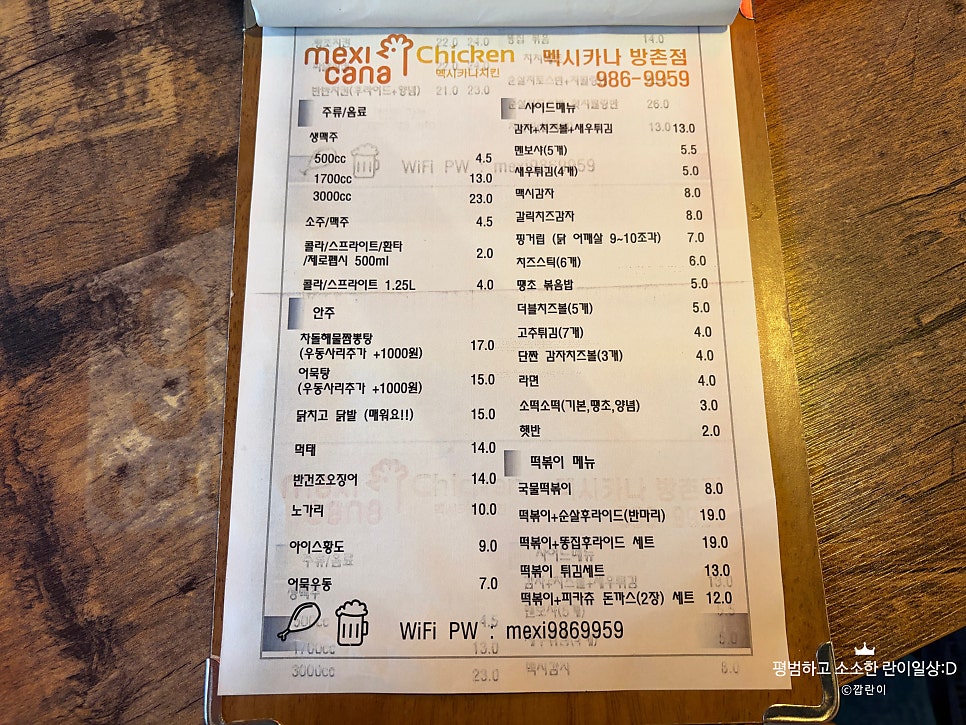 mexi
cana
Chicken
멕시카나치킨
멕시카나 방촌점
986-9959
주류/음료
생맥주
500cc 4.5
1700cc 13.0
3000cc 23.0
소주/맥주 4.5
콜라/스프라이트/환타
/제로펩시 500ml 2.0
콜라/스프라이트 1.25L 4.0
안주
차돌해물짬뽕탕
(우동사리추가 +1000원) 17.0
어묵탕
(우동사리추가 +1000원) 15.0
닭치고 닭발 (매워요!!) 15.0
먹태 14.0
반건조오징어 14.0
노가리 10.0
아이스황도 9.0
어묵우동 7.0
사이드메뉴
감자+치즈볼+새우튀김 13.0
멘보샤(5개) 5.5
새우튀김(4개) 5.0
맥시감자 8.0
갈릭치즈감자 8.0
핑거립 (닭 어깨살 9~10조각) 7.0
치즈스틱(6개) 6.0
땡초 볶음밥 5.0
더블치즈볼(5개) 5.0
고추튀김(7개) 4.0
단짠 감자치즈볼(3개) 4.0
라면 4.0
소떡소떡(기본,땡초,양념) 3.0
햇반 2.0
떡볶이 메뉴
국물떡볶이 8.0
떡볶이+순살후라이드(반마리) 19.0
떡볶이+똥집후라이드 세트 19.0
떡볶이 튀김세트 13.0
떡볶이+피카츄 돈까스(2장) 세트 12.0
WiFi PW : mexi9869959
평범하고 소소한 란이일상:D
©깜란이